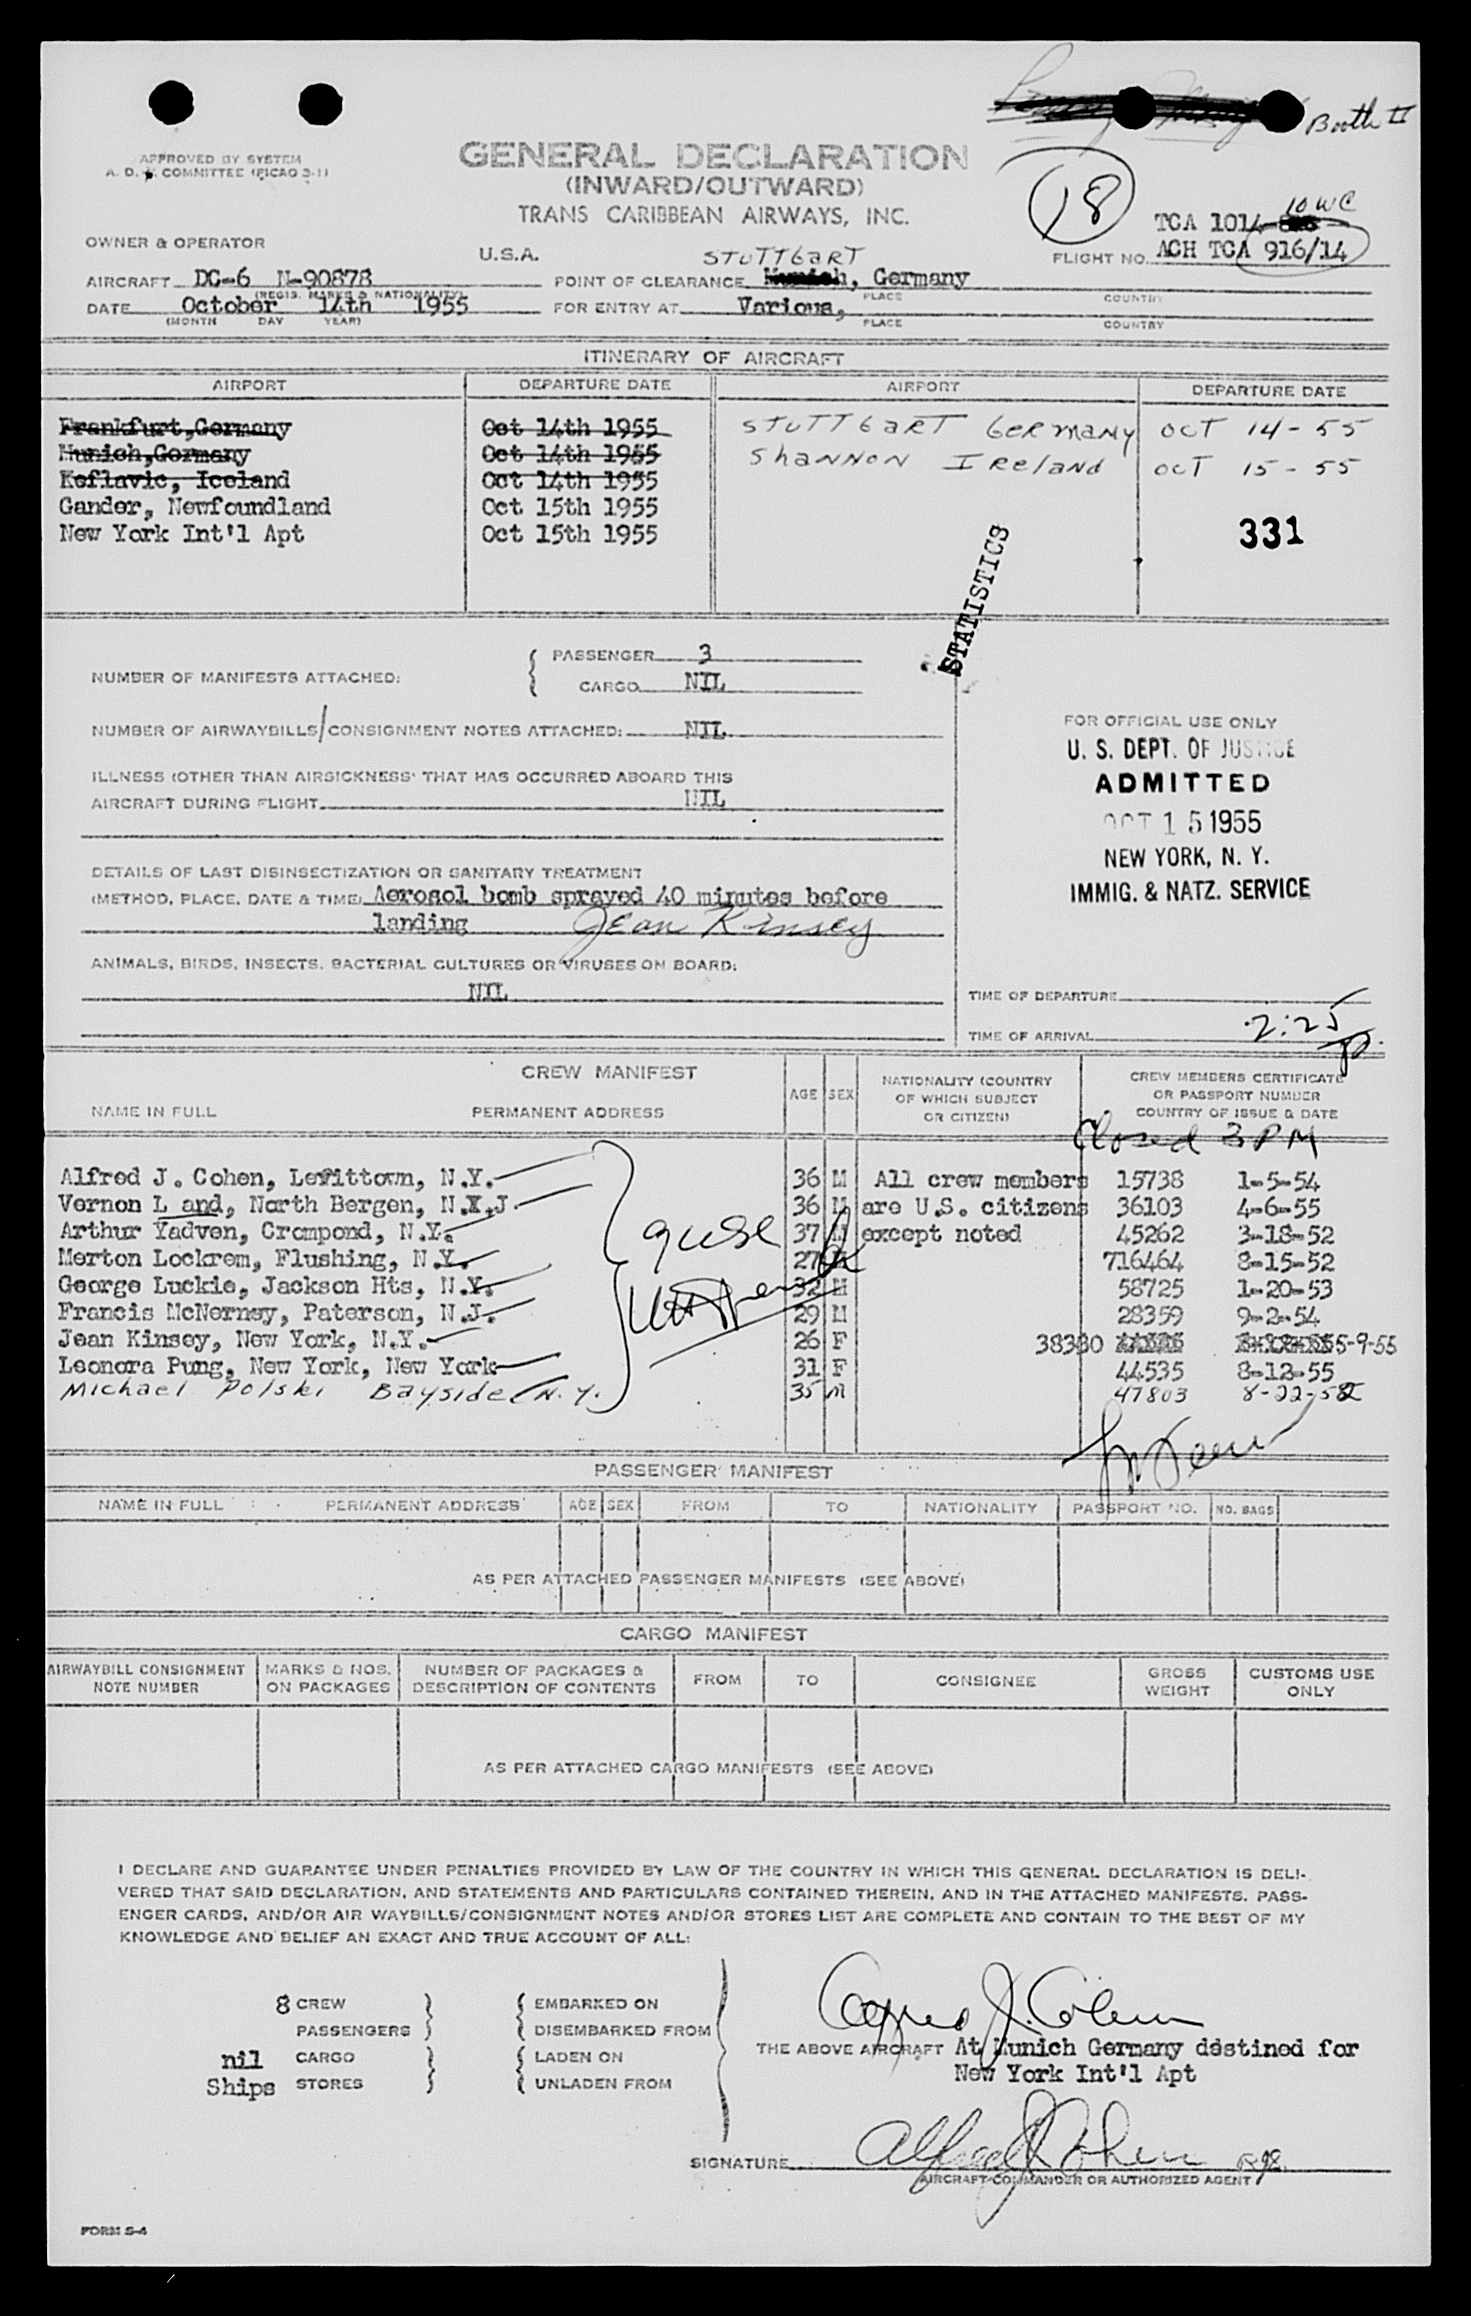 Booth II
APPROVED BY SYSTEM
A. D. F. COMMITTEE (PICAO 3-1)
GENERAL DECLARATION
(INWARD/OUTWARD)
TRANS CARIBBEAN AIRWAYS, INC.
18
10 WC
TCA 1014
OWNER & OPERATOR
U.S.A.
STUTTGART
FLIGHT NO. ACH TCA 916/14
AIRCRAFT DC-6 N-90878
POINT OF CLEARANCE Munich, Germany
(REGIS. MARKS & NATIONALITY)
PLACE COUNTRY
DATE October 14th 1955
FOR ENTRY AT Various,
(MONTH DAY YEAR)
PLACE COUNTRY
ITINERARY OF AIRCRAFT
AIRPORT DEPARTURE DATE AIRPORT DEPARTURE DATE
Frankfurt,Germany Oct 14th 1955 STUTTGART GERMANY OCT 14-55
Munich,Germany Oct 14th 1955 SHANNON IRELAND OCT 15-55
Keflavic, Iceland Oct 14th 1955
Gander, Newfoundland Oct 15th 1955
New York Int'l Apt Oct 15th 1955
331
STATISTICS
NUMBER OF MANIFESTS ATTACHED:
PASSENGER 3
CARGO NIL
NUMBER OF AIRWAYBILLS/CONSIGNMENT NOTES ATTACHED: NIL
ILLNESS (OTHER THAN AIRSICKNESS) THAT HAS OCCURRED ABOARD THIS
AIRCRAFT DURING FLIGHT NIL
FOR OFFICIAL USE ONLY
U. S. DEPT. OF JUSTICE
ADMITTED
OCT 15 1955
NEW YORK, N. Y.
IMMIG. & NATZ. SERVICE
DETAILS OF LAST DISINSECTIZATION OR SANITARY TREATMENT
(METHOD, PLACE, DATE & TIME) Aerosol bomb sprayed 40 minutes before
landing Jean Kinsey
ANIMALS, BIRDS, INSECTS, BACTERIAL CULTURES OR VIRUSES ON BOARD:
NIL
TIME OF DEPARTURE
TIME OF ARRIVAL 2:25 P.
CREW MANIFEST
NAME IN FULL PERMANENT ADDRESS AGE SEX
NATIONALITY (COUNTRY
OF WHICH SUBJECT
OR CITIZEN)
CREW MEMBERS CERTIFICATE
OR PASSPORT NUMBER
COUNTRY OF ISSUE & DATE
Closed 3 PM
Alfred J. Cohen, Levittown, N.Y. 36 M All crew members 15738 1-5-54
Vernon L and, North Bergen, N.J. 36 M are U.S. citizens 36103 4-6-55
Arthur Yadven, Crompond, N.Y. 37 M except noted 45262 3-18-52
Merton Lockrem, Flushing, N.Y. 27 M 716464 8-15-52
George Luckie, Jackson Hts, N.Y. 32 M 58725 1-20-53
Francis McNerney, Paterson, N.J. 29 M 28359 9-2-54
Jean Kinsey, New York, N.Y. 26 F 38380 5-9-55
Leonora Pung, New York, New York 31 F 44535 8-12-55
Michael Polski Bayside N.Y. 35 M 47803 8-22-52
PASSENGER MANIFEST
NAME IN FULL PERMANENT ADDRESS AGE SEX FROM TO NATIONALITY PASSPORT NO. NO. BAGS
AS PER ATTACHED PASSENGER MANIFESTS (SEE ABOVE)
CARGO MANIFEST
AIRWAYBILL CONSIGNMENT
NOTE NUMBER
MARKS & NOS.
ON PACKAGES
NUMBER OF PACKAGES &
DESCRIPTION OF CONTENTS
FROM TO CONSIGNEE
GROSS
WEIGHT
CUSTOMS USE
ONLY
AS PER ATTACHED CARGO MANIFESTS (SEE ABOVE)
I DECLARE AND GUARANTEE UNDER PENALTIES PROVIDED BY LAW OF THE COUNTRY IN WHICH THIS GENERAL DECLARATION IS DELI-
VERED THAT SAID DECLARATION, AND STATEMENTS AND PARTICULARS CONTAINED THEREIN, AND IN THE ATTACHED MANIFESTS, PASS-
ENGER CARDS, AND/OR AIR WAYBILLS/CONSIGNMENT NOTES AND/OR STORES LIST ARE COMPLETE AND CONTAIN TO THE BEST OF MY
KNOWLEDGE AND BELIEF AN EXACT AND TRUE ACCOUNT OF ALL:
8 CREW
PASSENGERS
nil CARGO
Ships STORES
EMBARKED ON
DISEMBARKED FROM
LADEN ON
UNLADEN FROM
Alfred J. Cohen
THE ABOVE AIRCRAFT At Munich Germany destined for
New York Int'l Apt
SIGNATURE Alfred J Cohen
AIRCRAFT COMMANDER OR AUTHORIZED AGENT
FORM S-4